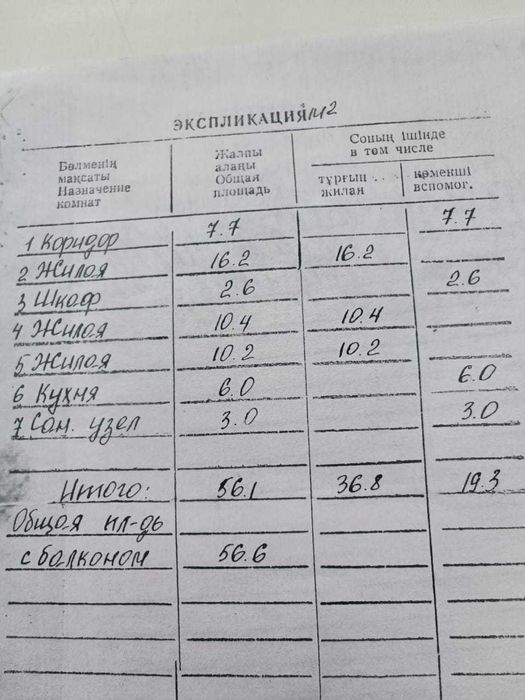 ЭКСПЛИКАЦИЯ м2
Бөлменің мақсаты Назначение комнат
Жалпы алаңы Общая площадь
Соның ішінде в том числе
тұрғын жилая
көмекші вспомог.
1 Коридор 7.7 7.7
2 Жилая 16.2 16.2
3 Шкаф 2.6 2.6
4 Жилая 10.4 10.4
5 Жилая 10.2 10.2
6 Кухня 6.0 6.0
7 Сан. узел 3.0 3.0
Итого: 56.1 36.8 19.3
Общая пл-дь
с балконом 56.6